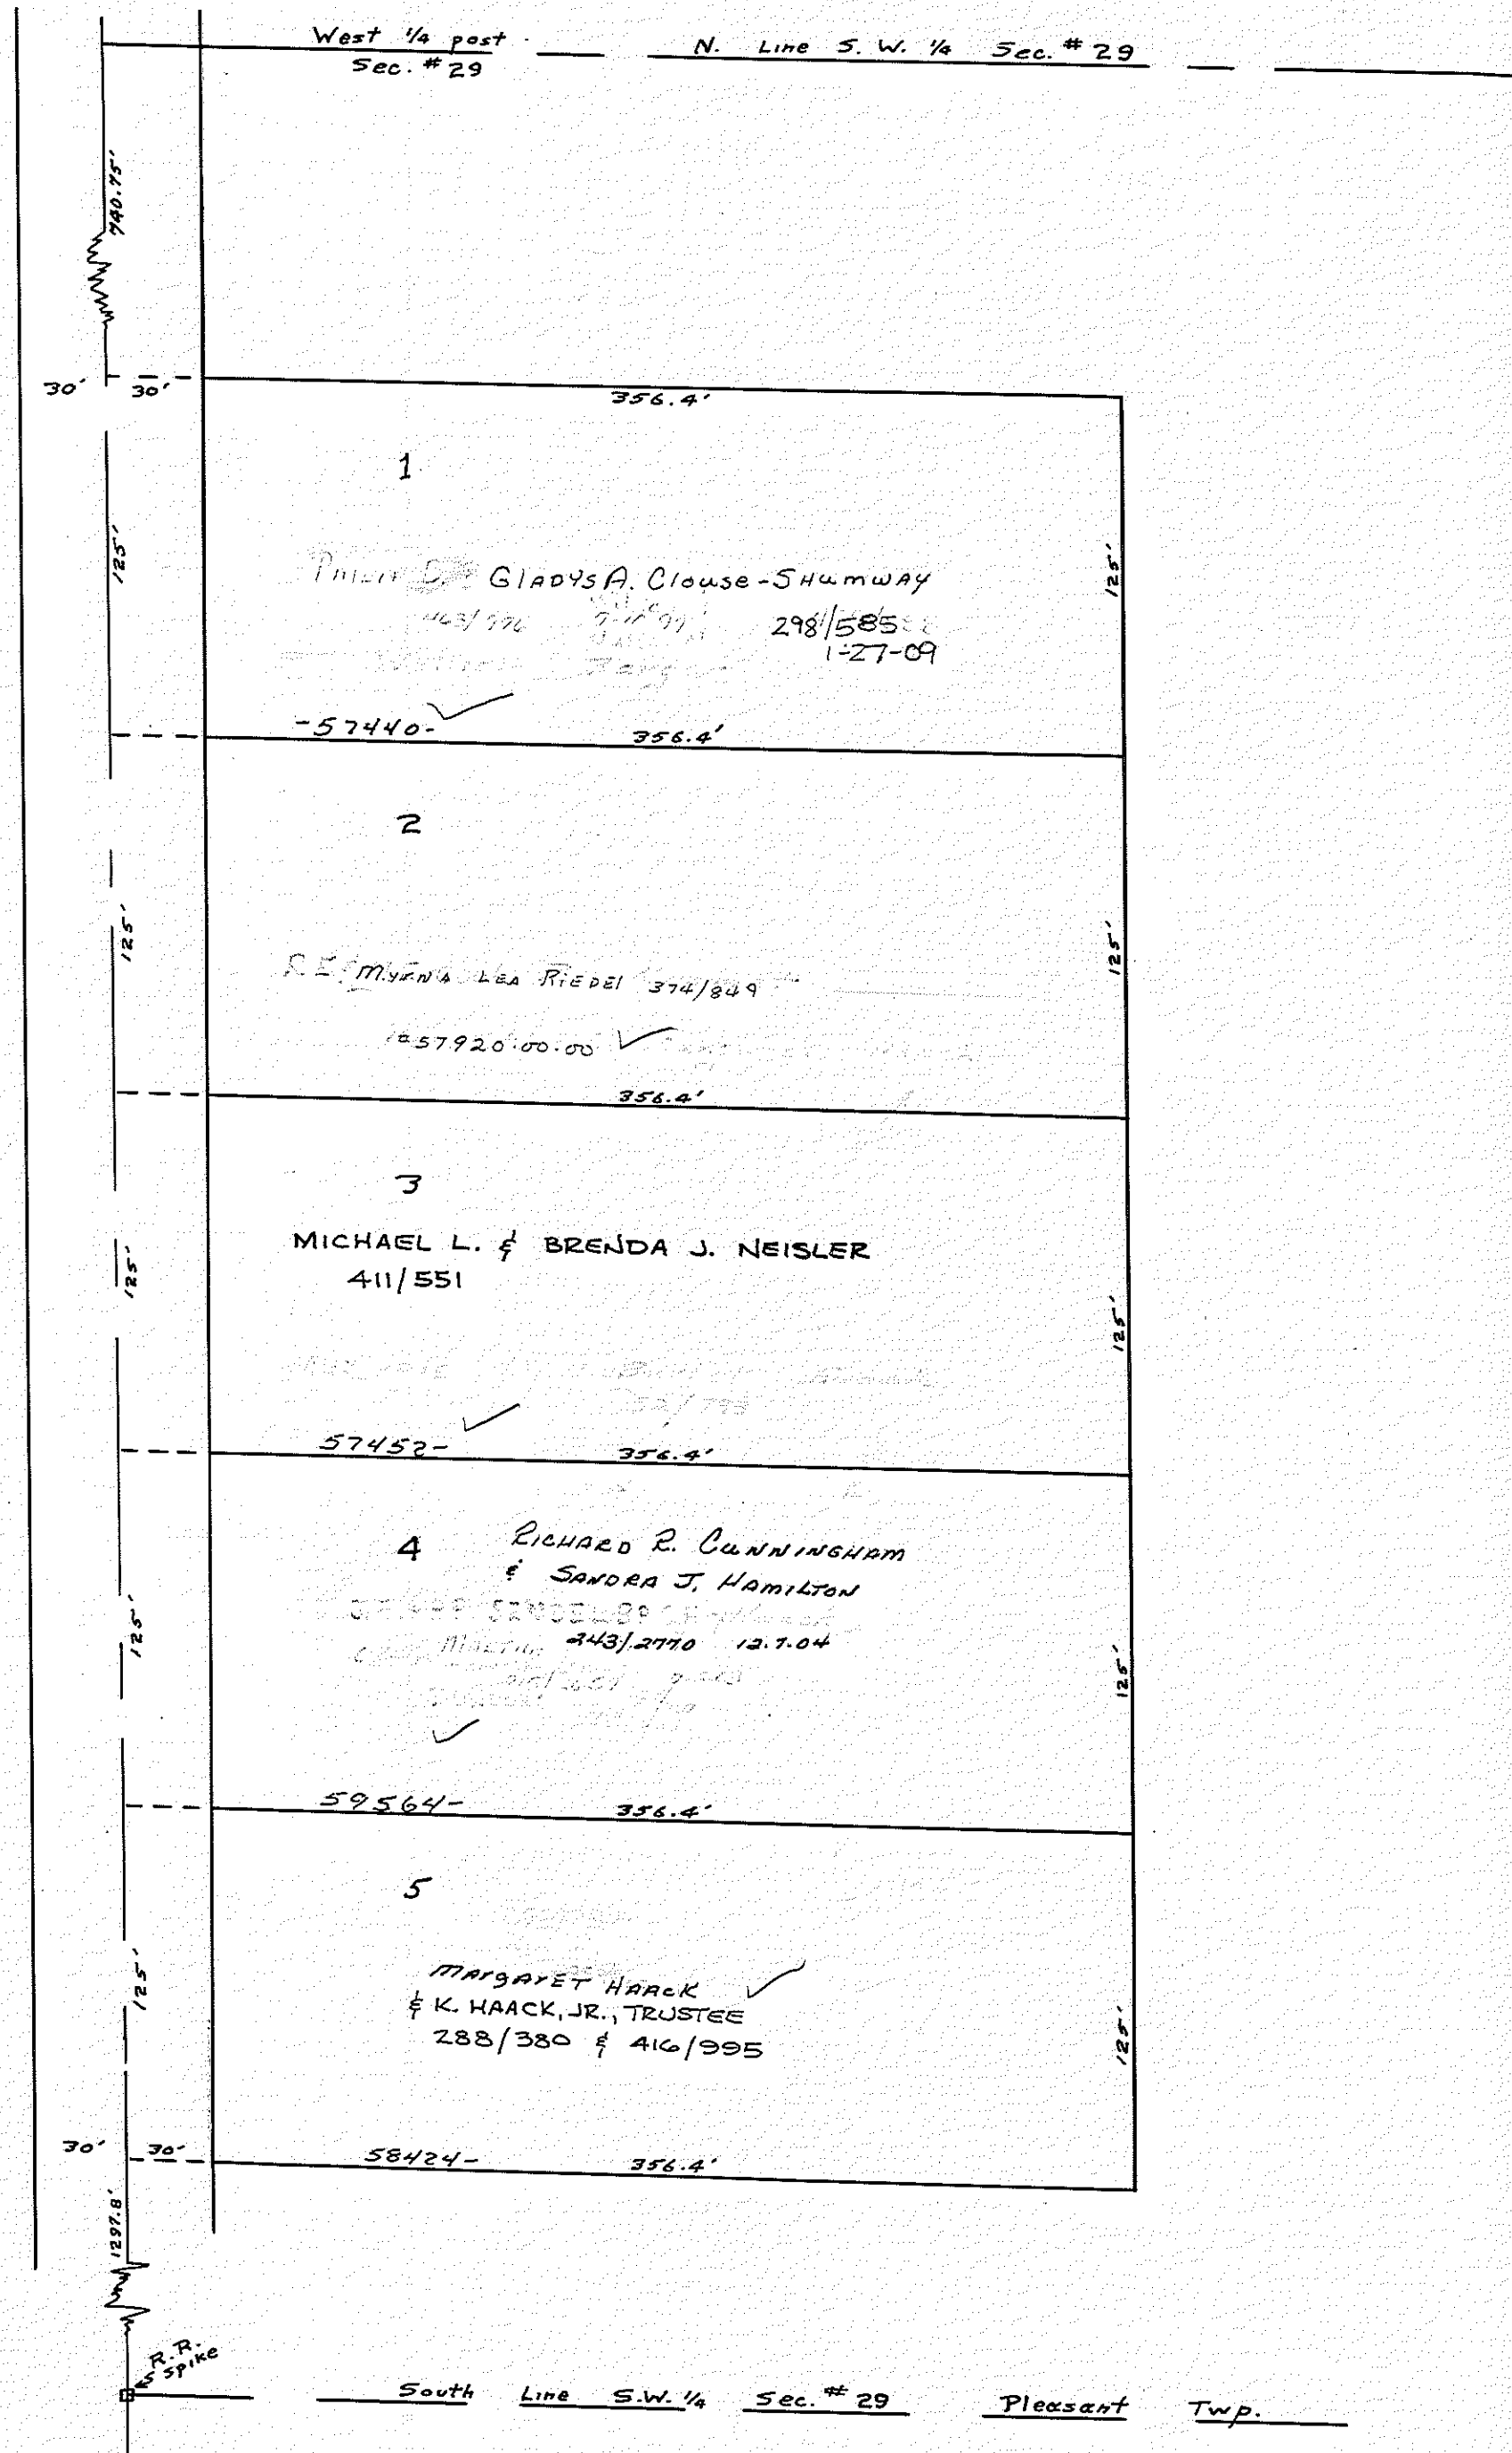 West 1/4 post
Sec. # 29
N. Line S. W. 1/4 Sec. # 29
740.75'
30'
30'
356.4'
1
125'
125'
GLADYS A. Clouse-SHUMWAY
298/585
1-27-09
-57440-
356.4'
2
125'
125'
MYRNA LEA RIEDEl 374/849
#57920.00.00
356.4'
3
MICHAEL L. & BRENDA J. NEISLER
411/551
125'
125'
57452-
356.4'
4
RICHARD R. CUNNINGHAM
& SANDRA J. HAMILTON
243/2770 12.7.04
125'
125'
59564-
356.4'
5
MArgArET HAAcK
& K. HAACK, JR., TRUSTEE
288/380 & 416/995
125'
125'
30'
30'
58424-
356.4'
1297.8'
R.R.
Spike
South Line S.W. 1/4 Sec. # 29 Pleasant Twp.